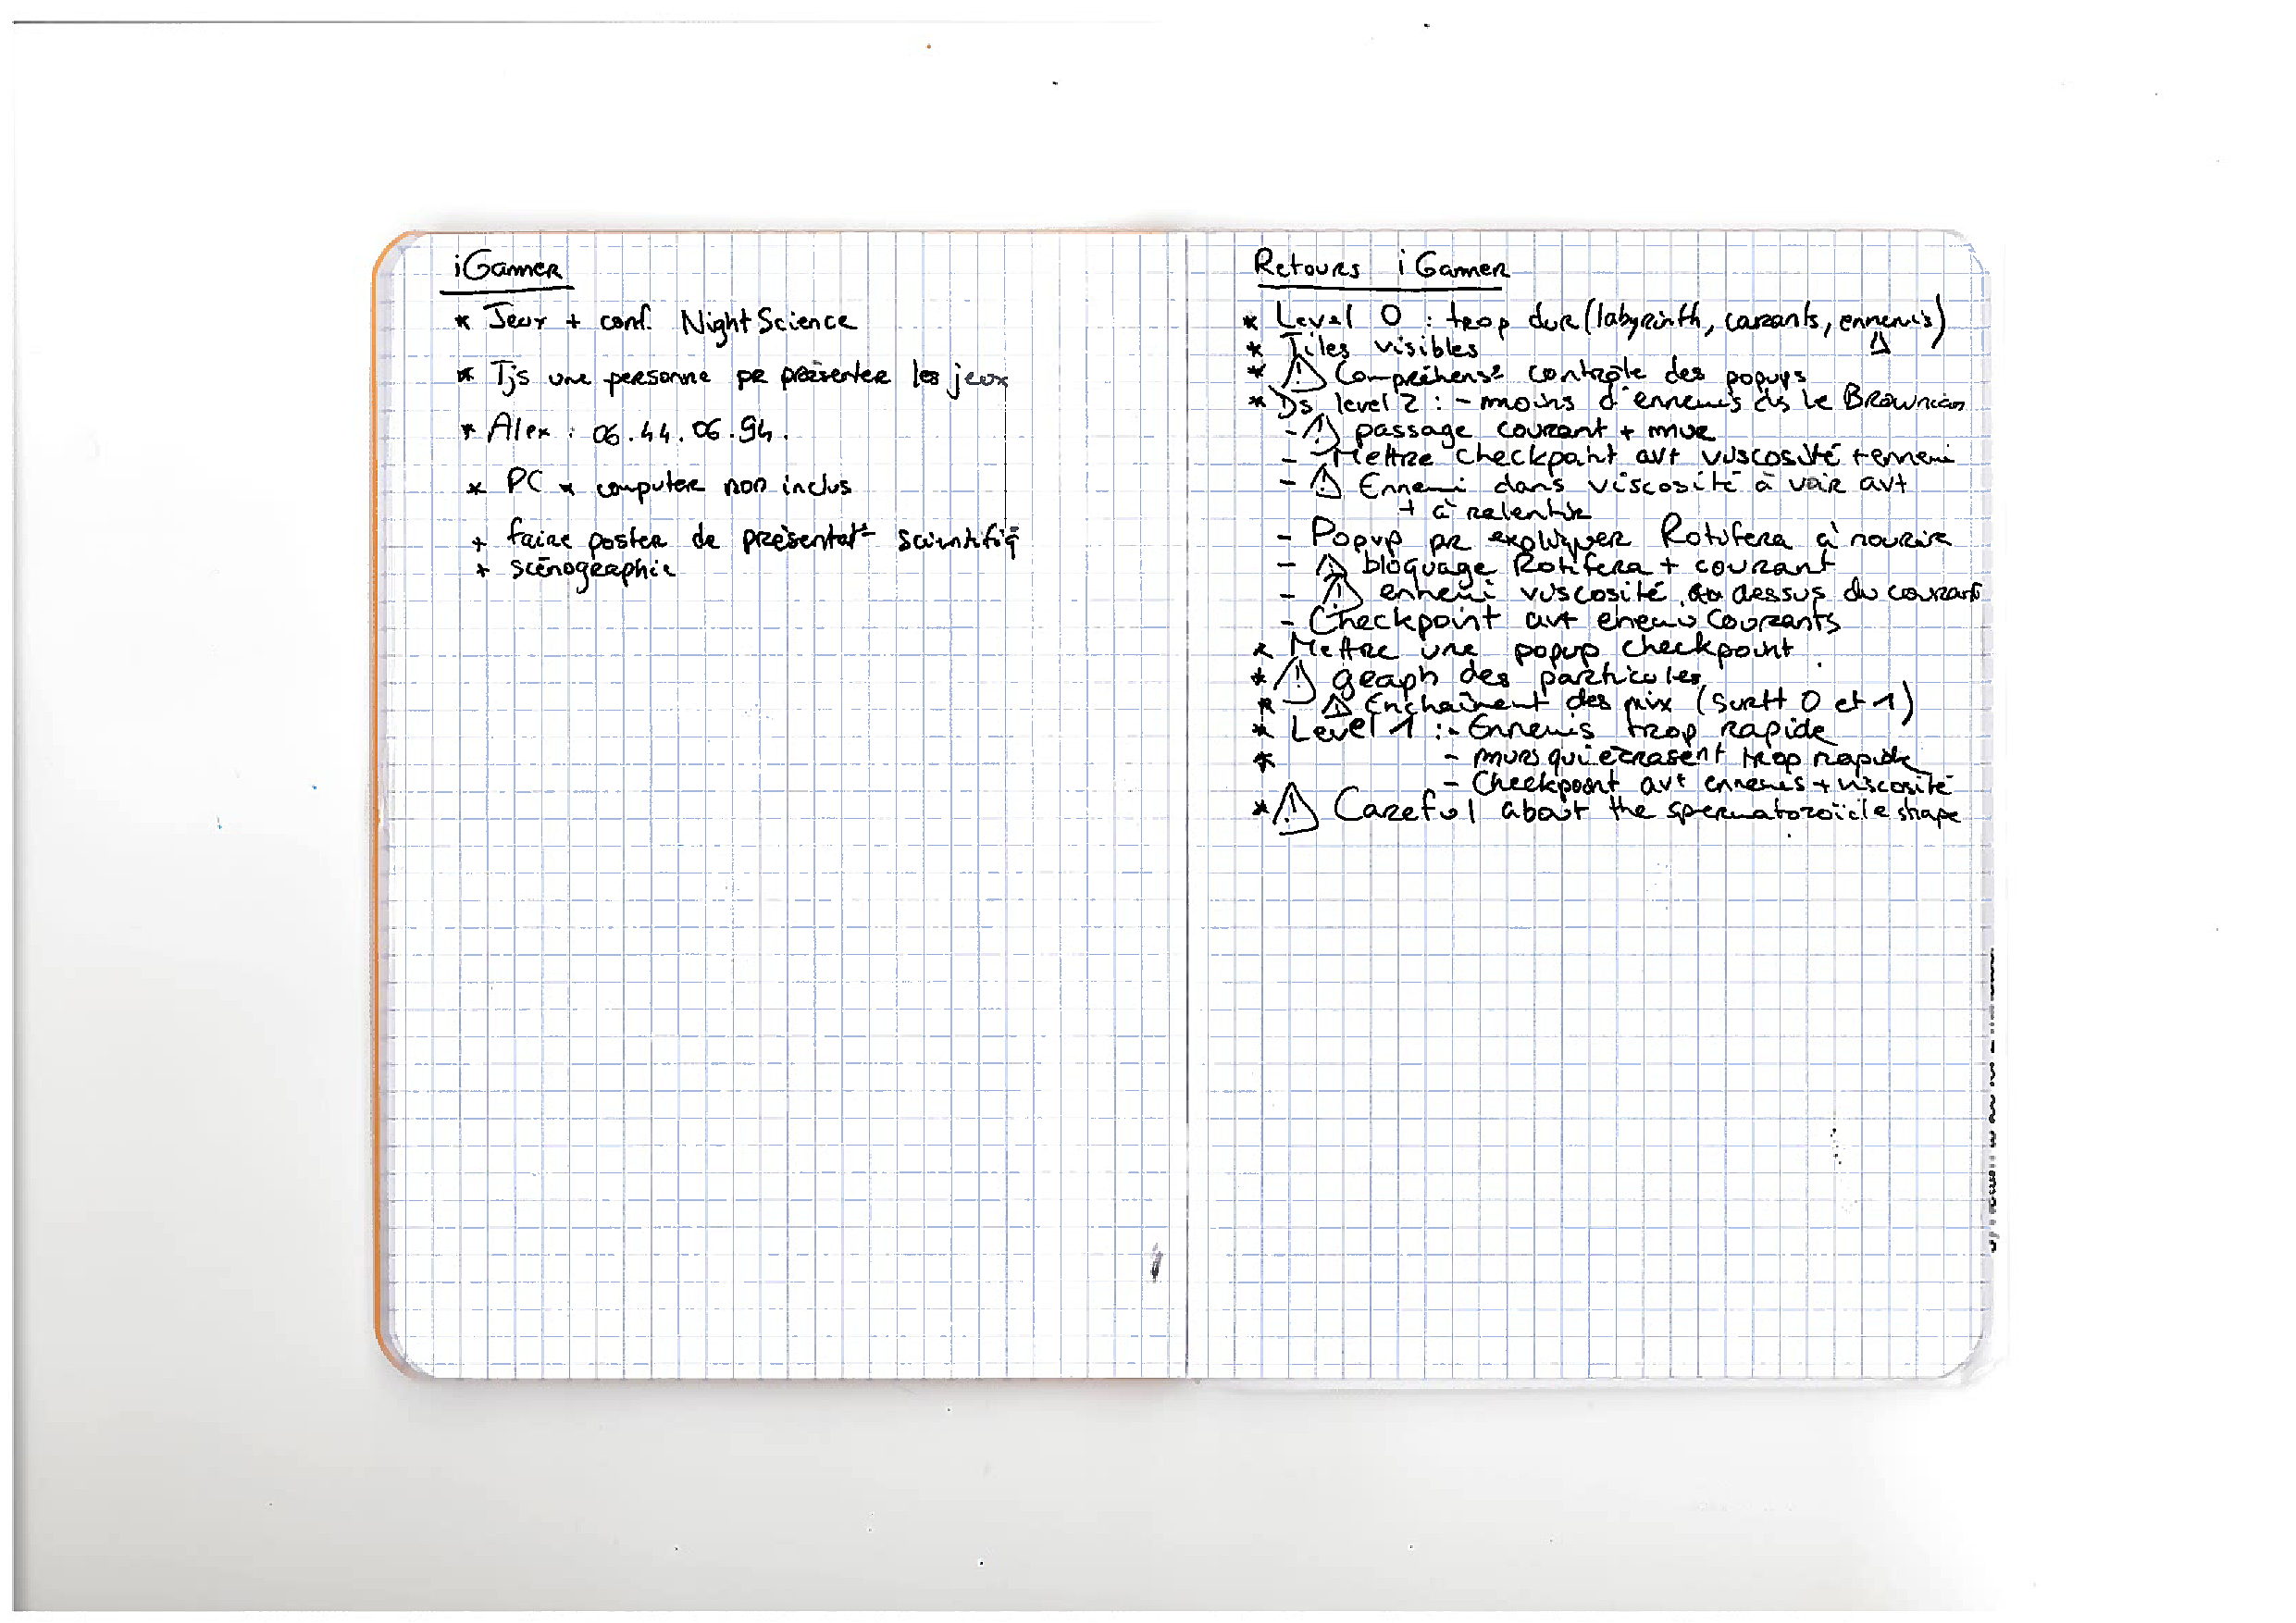 iGamer
* Jeux + conf. NightScience
* Tjs une personne pr présenter les jeux
* Alex : 06.44.06.94.
* PC * computer non inclus
+ faire poster de présentat° scientifiq
+ scénographie
Retours iGamer
* Level 0 : trop dur (labyrinth, courants, ennemis)
* Tiles visibles
* ⚠ Compréhens° contrôle des popups
* Ds level 2 : - moins d'ennemis ds le Brownian
- ⚠ passage courant + mur
- Mettre checkpoint avt viscosité + ennemi
- ⚠ Ennemi dans viscosité à voir avt
+ à ralentir
- Popup pr expliquer Rotifera à nourir
- ⚠ bloquage Rotifera + courant
- ⚠ ennemi viscosité au dessus du courant
- Checkpoint avt enemis Courants
* Mettre une popup checkpoint
* ⚠ graph des particules
* ⚠ Enchaînent des nivx (surtt 0 et 1)
* Level 1 : - Ennemis trop rapide
* - murs qui écrasent trop rapide
- Checkpoint avt ennemis + viscosité
* ⚠ Careful about the spermatozoïde shape